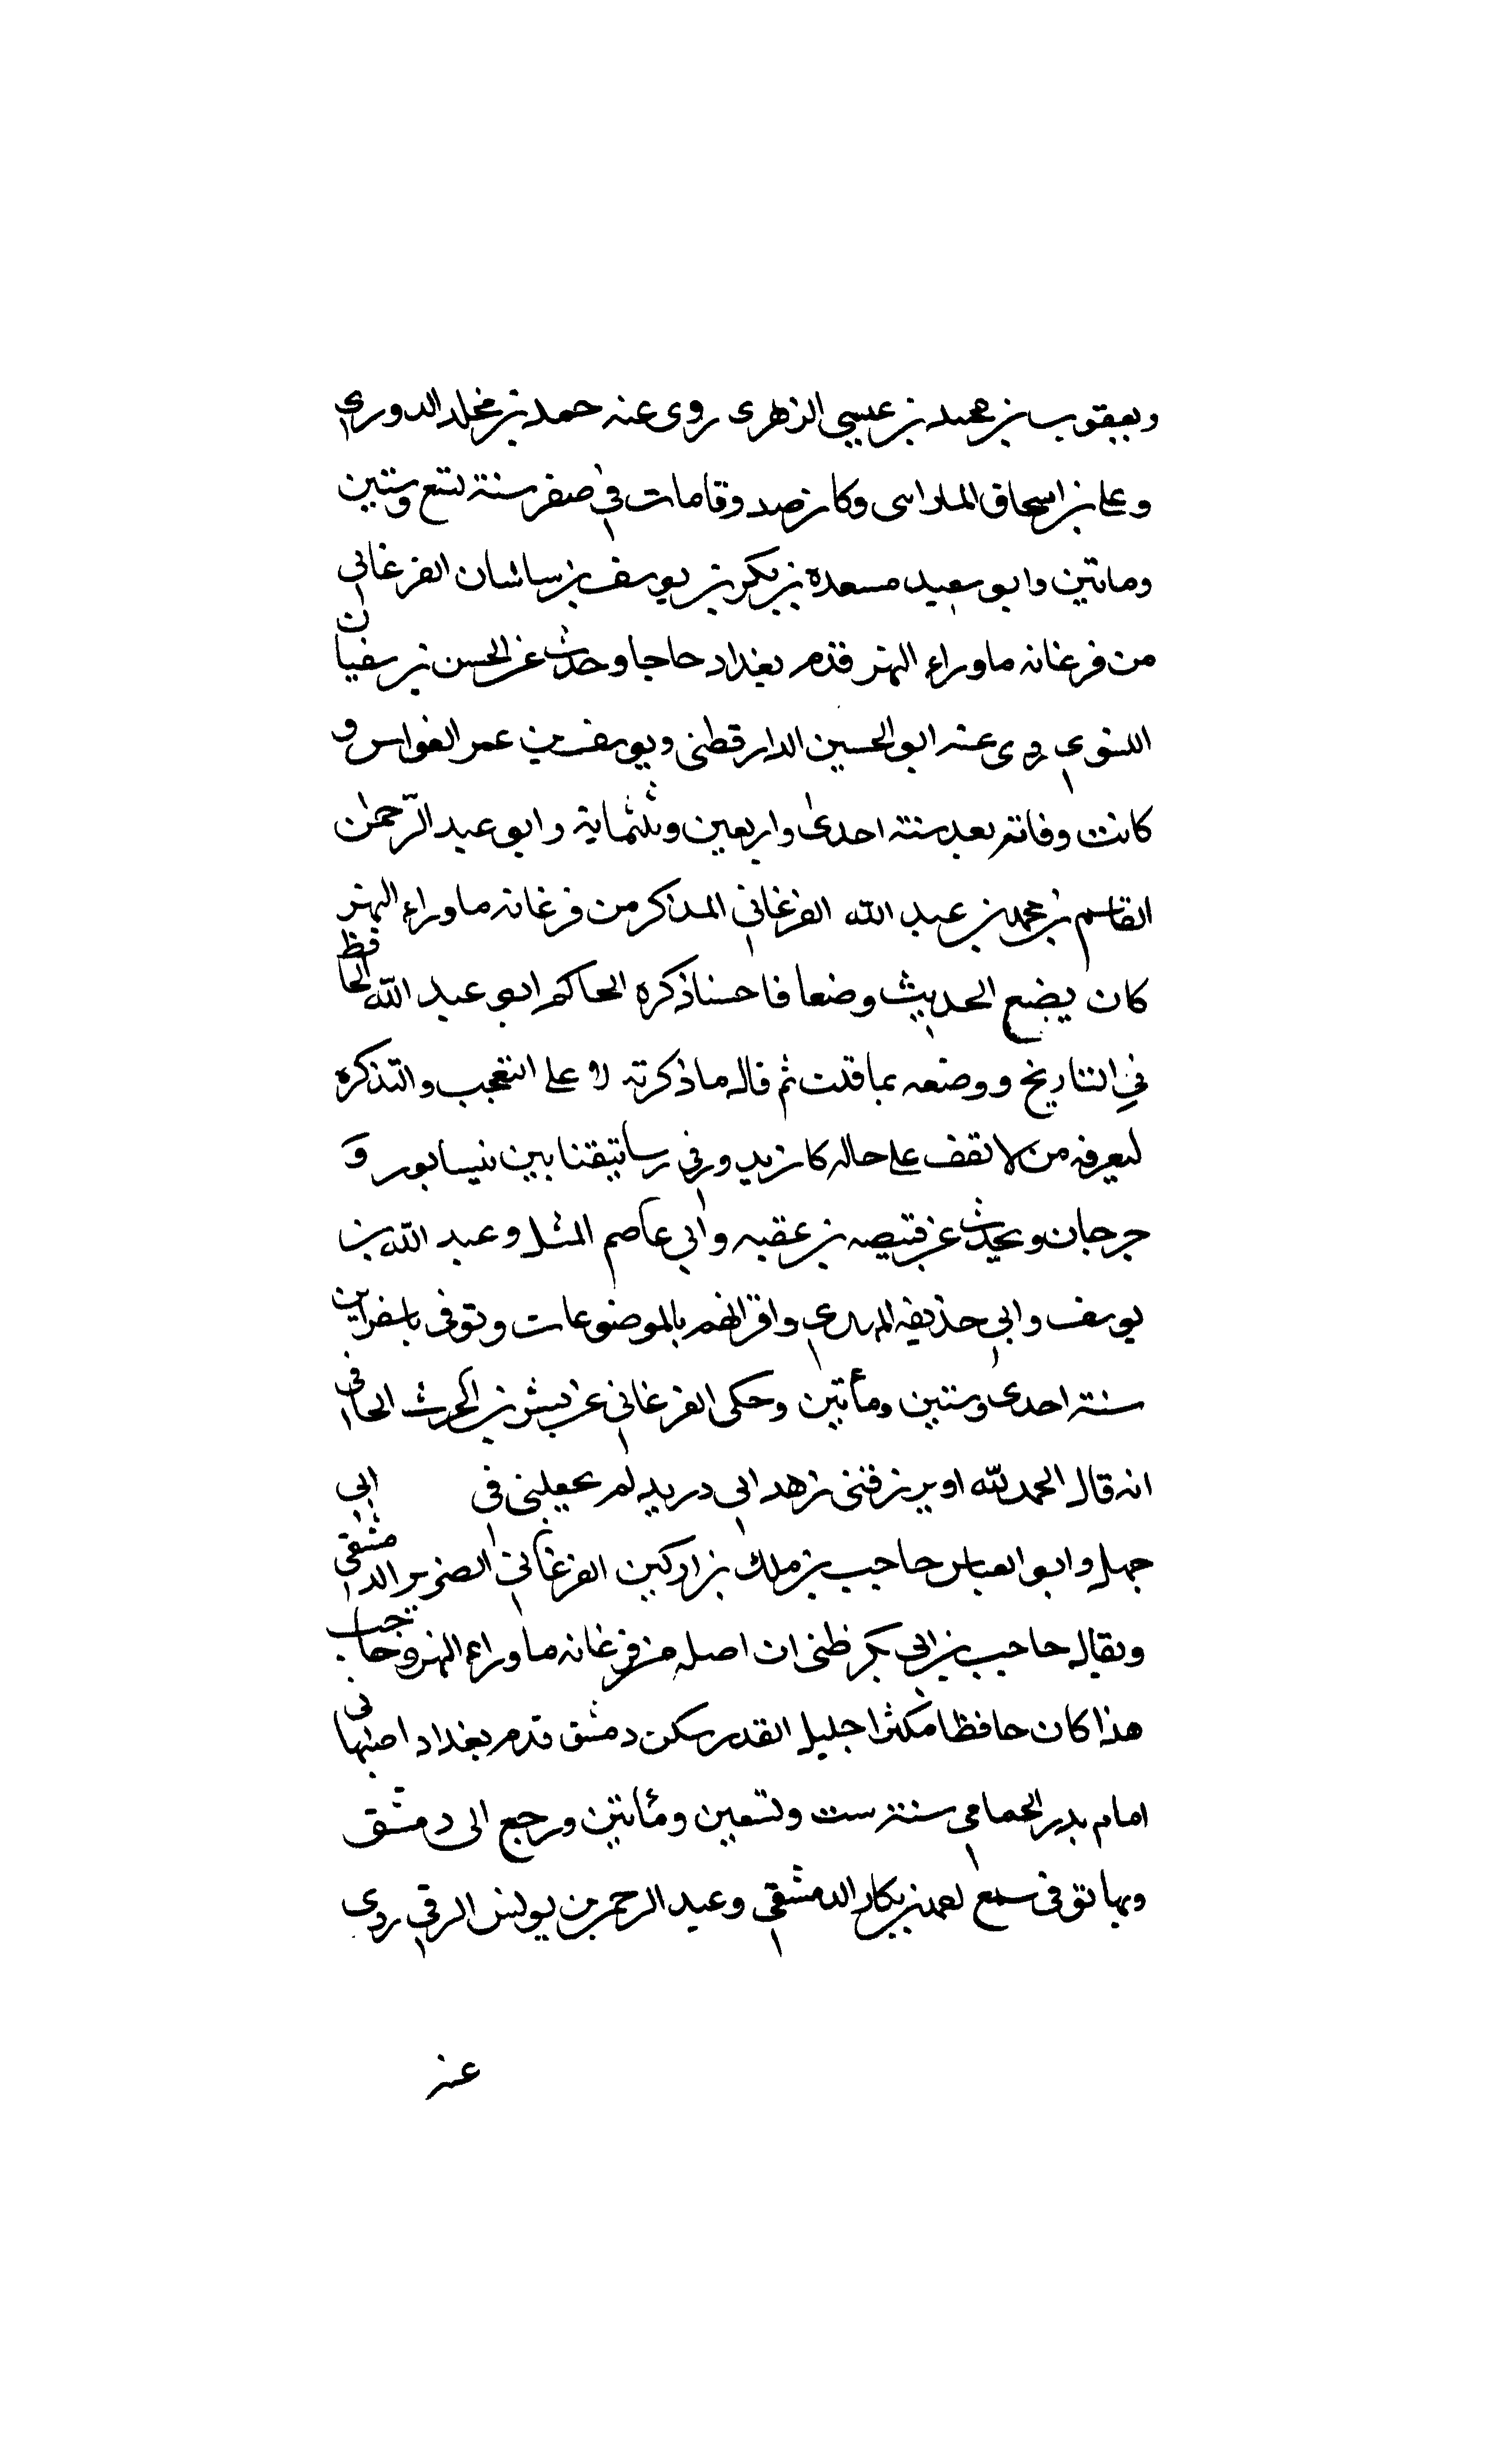 ويعقوب بن محمد بن عيسى الزهرى روى عنه حمد بن مخلد الدورى
وعلى بن اسحاق المادراى وكان صدوقا مات فى صفر سنة تسع وستين
وماتين وابو سعيد مسعده بن بكر بن يوسف بن ساشان الفرغانى
من فرغانه ماوراء النهر قدم بغداد حاجا وحدث عن الحسن بن سفيان
النسوى روى عنه ابو الحسين الدارقطنى ويوسف بن عمر القواس و
كانت وفاته بعد سنة احدى واربعين وثلثماية وابو عبد الرحمن
القاسم بن محمد بن عبد الله الفرغانى المذكر من فرغانه ماوراء النهر
كان يضع الحديث وضعا فاحسنا ذكره الحاكم ابو عبد الله الحافظ
فى التاريخ ووصفه بما قلت ثم قال ما ذكرته الا على التعجب والتذكره
ليعرفه من لا تقف على حاله كان يدور فى رساتيقنا بين نيسابور و
جرجان ويحدث عن قبيصه بن عقبه وابى عاصم النبيل وعبد الله بن
يوسف وابى حذيفه النهدى واقرانهم بالموضوعات وتوفى باسفراين
سنة احدى وستين ومأتين وحكى الفرغانى عن بشر بن الحرث الحافى
انه قال الحمد لله او يرزقنى زهد ابى دريد لم يجعلنى فى ابى
جهل وابو العباس حاجب بن ملك بن اركين الفرغانى الضرير الدمشقى
ويقال حاجب بن ابى بكر ظنى ان اصله من فرغانه ماوراء النهر وحاجب
هذا كان حافظا مكثرا جليل القدر سكن دمشق قدم بغداد اصبهانى
امام بدر الحمامى سنة ست وتسعين ومأتين ورجع الى دمشق
وبها توفى سمع احمد بن بكار الدمشقى وعبد الرحمن بن يونس الرقى روى
عنه